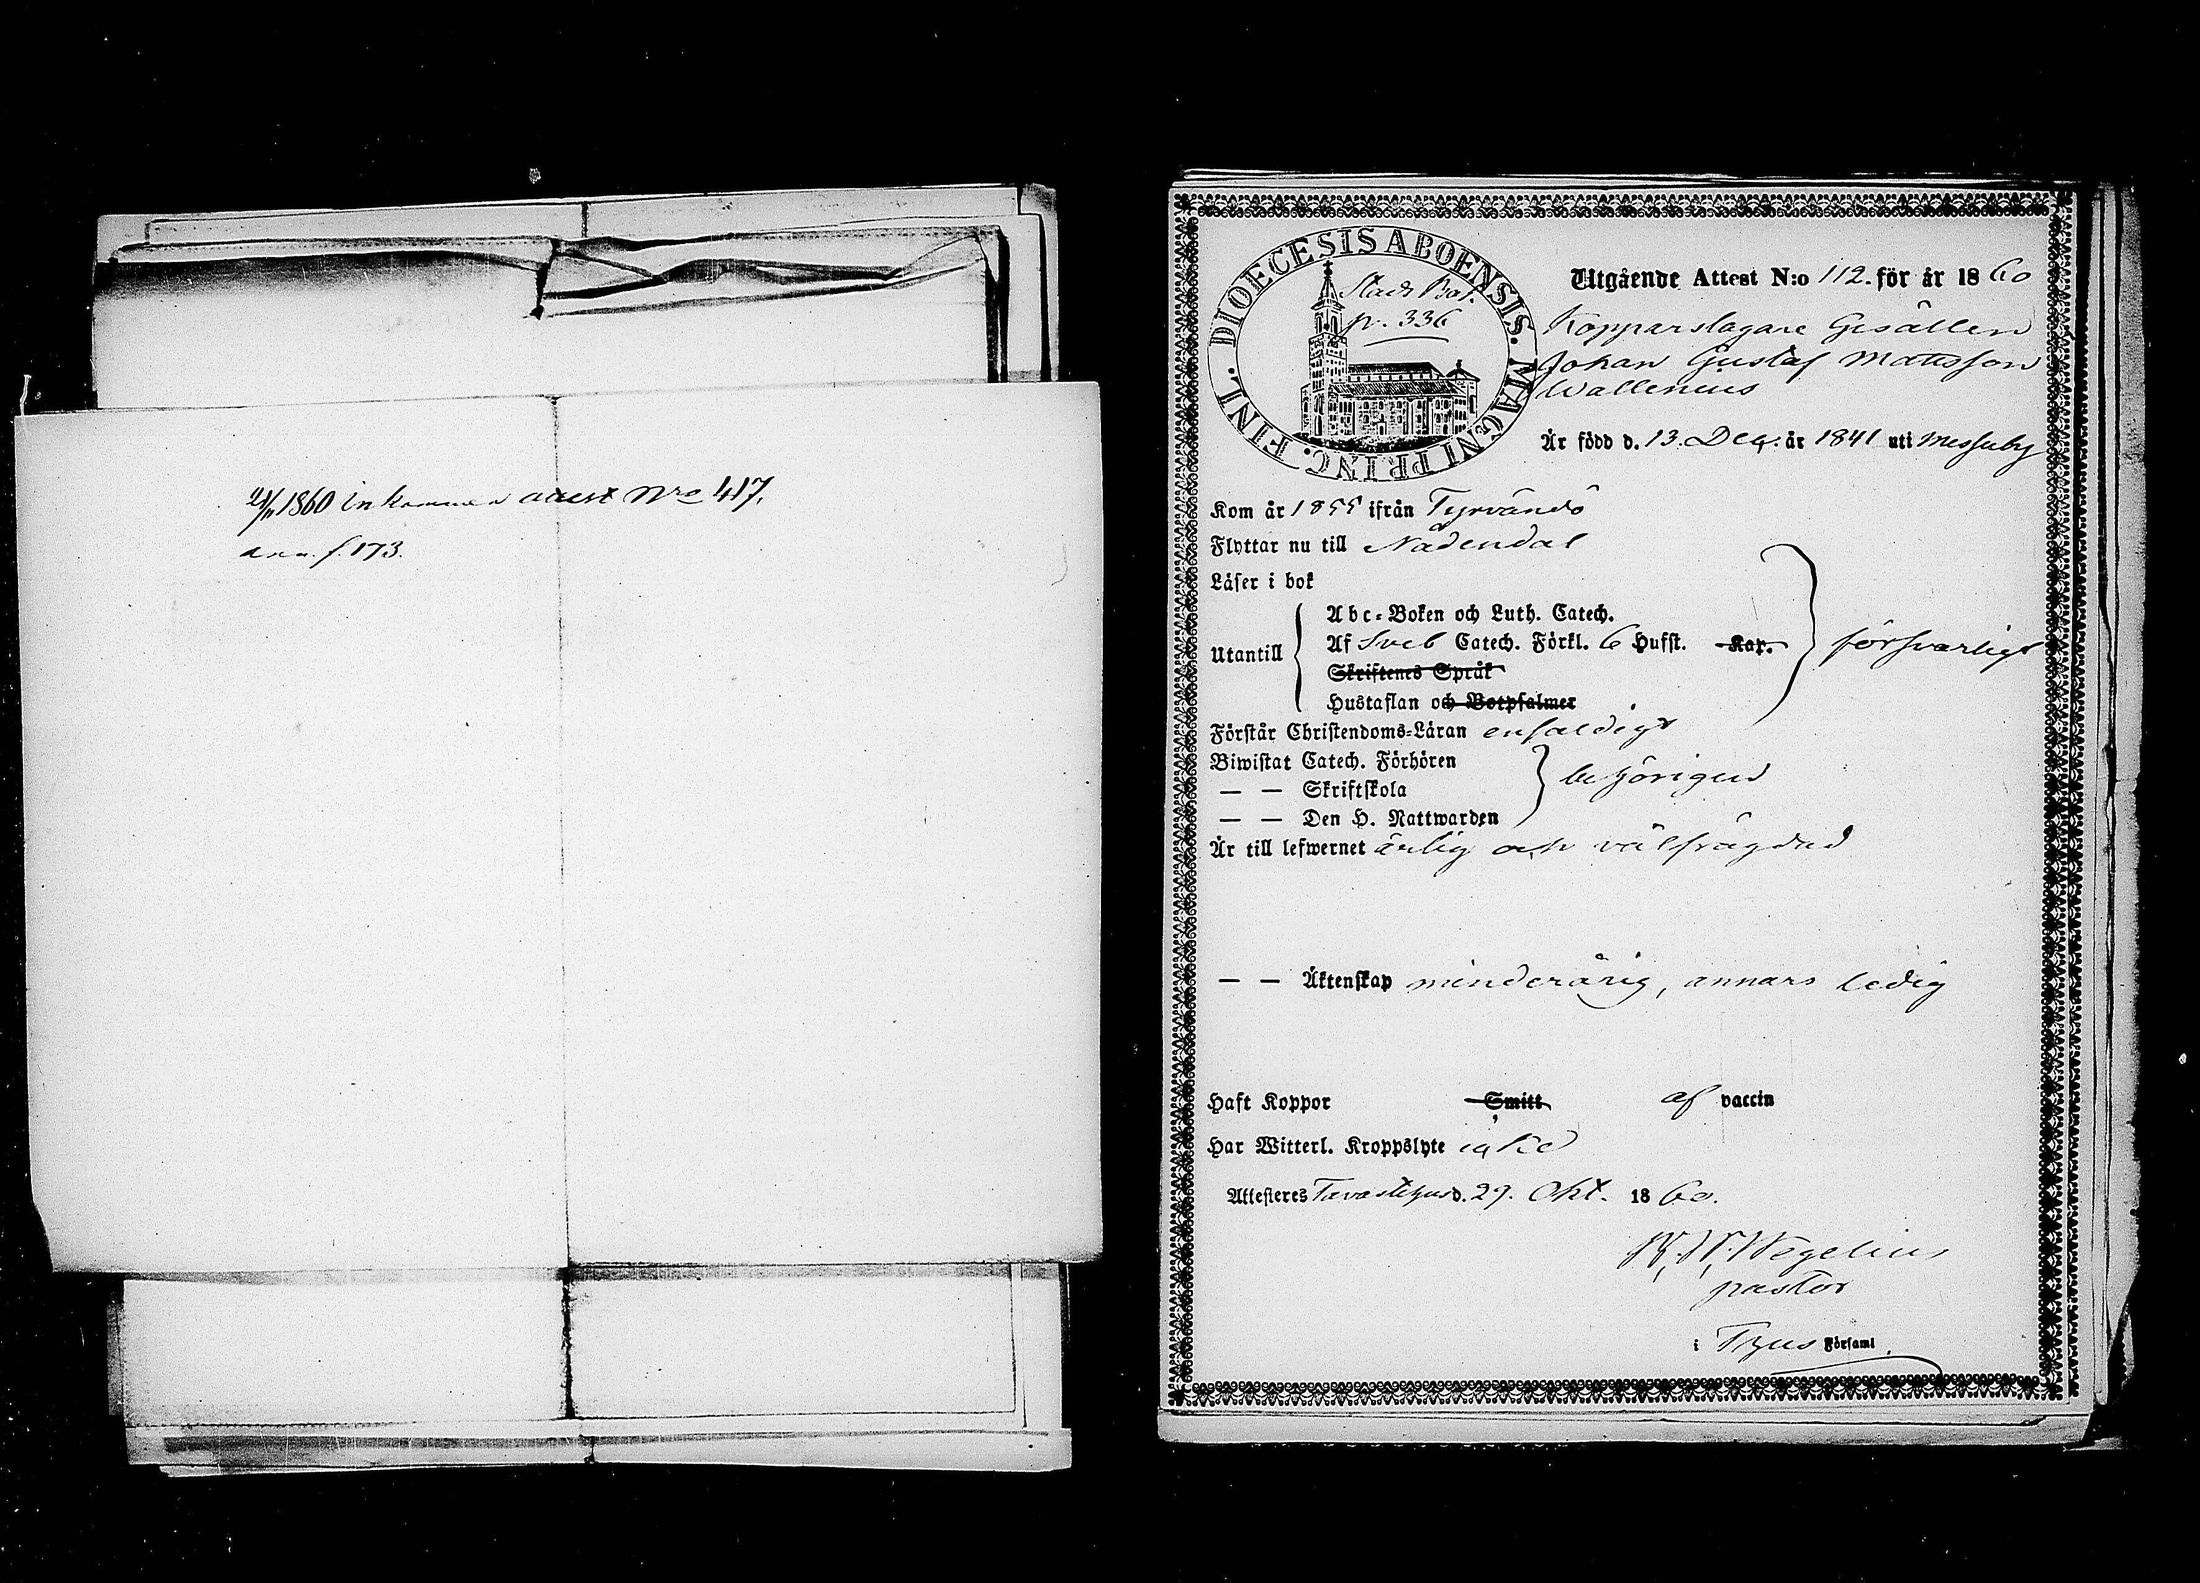 21/11 1860 inkommen attest Nro 417.
ann. f. 173.
DIOECESIS ABOENSIS. MAGNI PRINC. FINL.
Stads Bat.
p. 336
Utgående Attest N:o 112. för år 1860
Kopparslagare Gesällen
Johan Gustaf Mattsson
Wallenius
Är född d. 13. Dec. år 1841 uti Messuby
Kom år 1855 ifrån Tyrvändö
Flyttar nu till Nådendal
Läser i bok
Abc-Boken och Luth. Catech.
Utantill
Af Sveb Catech. Förkl. 6 Hufst. Kap.
försvarligt
Skriftenes Språk
Hustaflan och Botpsalmer
Förstår Christendoms-Läran enfaldigt
Biwistat Catech. Förhören
— — Skriftskola
behörigen
— — Den H. Nattwarden
Är till lefwernet ärlig och välfrägdad
— — Äktenskap minderårig, annars ledig
Haft Koppor Smitt af vaccin
Har Witterl. Kroppslyte icke
Attesteres Tavastehus d. 29. Okt. 1860.
Wegelius
pastor
i Thus Församl.